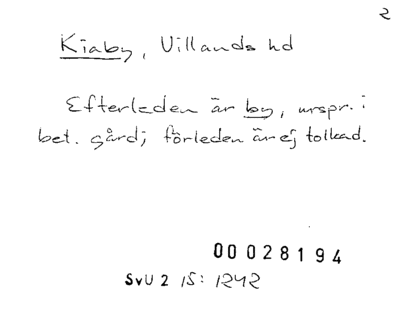 2
Kiaby, Villands hd
Efterleden är by, urspr. i
bet. gård; förleden är ej tolkad.
00028194
SvU 2 15: 1242